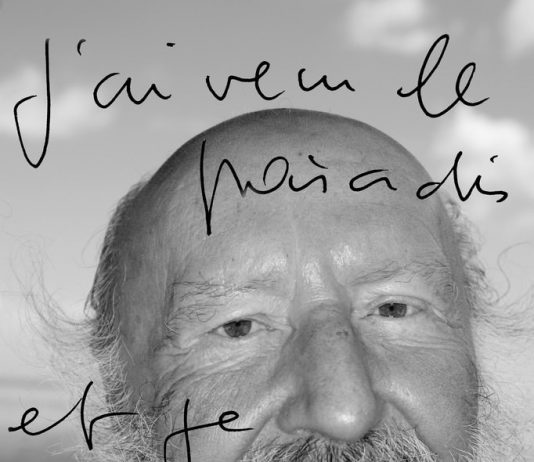 J'ai vecu le
paradis
et je